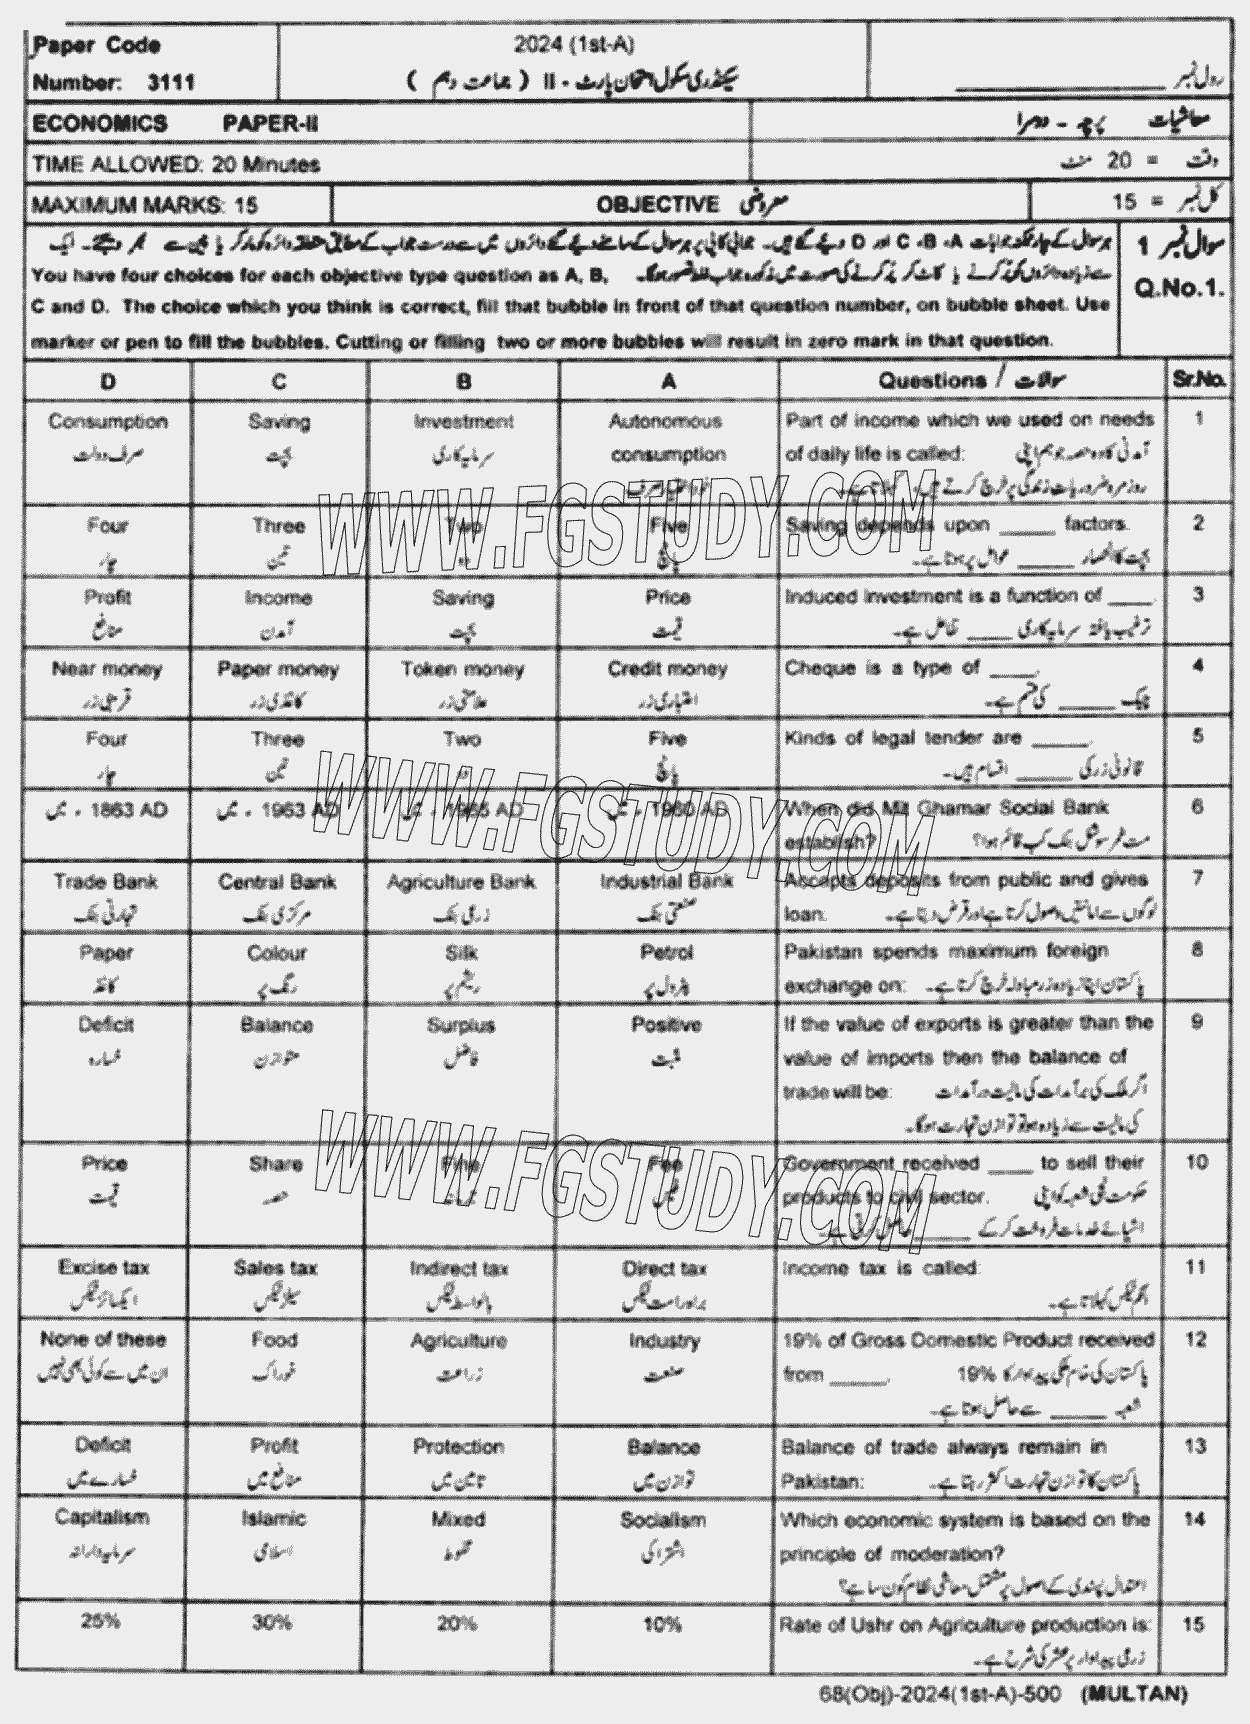 Paper Code
Number: 3111
2024 (1st-A)
سیکنڈری سکول امتحان پارٹ - II ( جماعت دہم )
رول نمبر
ECONOMICS PAPER-II
معاشیات پرچہ - دوسرا
TIME ALLOWED: 20 Minutes
وقت = 20 منٹ
MAXIMUM MARKS: 15
OBJECTIVE معروضی
کل نمبر = 15
سوال نمبر 1
Q.No.1.
ہر سوال کے چار ممکنہ جوابات A، B، C اور D دیئے گئے ہیں۔ جوابی کاپی پر ہر سوال کے سامنے دیئے گئے دائروں میں سے درست جواب کے مطابق متعلقہ دائرہ کو مارکر یا پین سے بھر دیجئے۔ ایک
سے زیادہ دائروں کو پُر کرنے یا کاٹ کر پُر کرنے کی صورت میں مذکورہ جواب غلط تصور ہوگا۔
You have four choices for each objective type question as A, B,
C and D. The choice which you think is correct, fill that bubble in front of that question number, on bubble sheet. Use
marker or pen to fill the bubbles. Cutting or filling two or more bubbles will result in zero mark in that question.
D C B A Questions / سوالات Sr.No.
Consumption Saving Investment Autonomous Part of income which we used on needs 1
صرف دولت بچت سرمایہ کاری consumption of daily life is called: آمدنی کا وہ حصہ جو ہم اپنی
روزمرہ ضروریات زندگی پر خرچ کرتے ہیں، کہلاتا ہے۔
Four Three Two Five Saving depends upon _____ factors. 2
چار تین دو پانچ بچت کا انحصار _____ عوامل پر ہوتا ہے۔
Profit Income Saving Price Induced investment is a function of ____. 3
منافع آمدن بچت قیمت ترغیب یافتہ سرمایہ کاری ____ تفاعل ہے۔
Near money Paper money Token money Credit money Cheque is a type of ____. 4
قریبی زر کاغذی زر علامتی زر اعتباری زر چیک _____ کی قسم ہے۔
Four Three Two Five Kinds of legal tender are _____. 5
چار تین دو پانچ قانونی زر کی _____ اقسام ہیں۔
1863 AD ، میں 1963 AD ، میں 1965 AD ، میں 1960 AD ، میں When did Mit Ghamar Social Bank 6
establish? مت غمر سوشل بنک کب قائم ہوا؟
Trade Bank Central Bank Agriculture Bank Industrial Bank Accepts deposits from public and gives 7
تجارتی بنک مرکزی بنک زرعی بنک صنعتی بنک loan. لوگوں سے امانتیں وصول کرتا ہے اور قرض دیتا ہے۔
Paper Colour Silk Petrol Pakistan spends maximum foreign 8
کاغذ رنگ پر ریشم پر پٹرول پر exchange on: پاکستان اپنا زیادہ زرمبادلہ خرچ کرتا ہے۔
Deficit Balance Surplus Positive If the value of exports is greater than the 9
خسارہ متوازن فاضل مثبت value of imports then the balance of
trade will be: اگر ملک کی برآمدات کی مالیت درآمدات
کی مالیت سے زیادہ ہو تو توازن تجارت ہوگا۔
Price Share Fine Fee Government received ____ to sell their 10
قیمت حصہ جرمانہ فیس products to civil sector. حکومت نجی شعبہ کو اپنی
اشیائے خدمات فروخت کر کے _____ حاصل کرتی ہے۔
Excise tax Sales tax Indirect tax Direct tax Income tax is called: 11
ایکسائز ٹیکس سیلز ٹیکس بالواسطہ ٹیکس براہ راست ٹیکس انکم ٹیکس کہلاتا ہے۔
None of these Food Agriculture Industry 19% of Gross Domestic Product received 12
ان میں سے کوئی بھی نہیں خوراک زراعت صنعت from _____. پاکستان کی خام ملکی پیداوار کا 19%
شعبہ _____ سے حاصل ہوتا ہے۔
Deficit Profit Protection Balance Balance of trade always remain in 13
خسارے میں منافع میں تامین میں توازن میں Pakistan: پاکستان کا توازن تجارت اکثر رہتا ہے۔
Capitalism Islamic Mixed Socialism Which economic system is based on the 14
سرمایہ دارانہ اسلامی مخلوط اشتراکی principle of moderation?
اعتدال پسندی کے اصول پر مشتمل معاشی نظام کون سا ہے؟
25% 30% 20% 10% Rate of Ushr on Agriculture production is: 15
زرعی پیداوار پر عشر کی شرح ہے۔
68(Obj)-2024(1st-A)-500 (MULTAN)
WWW.FGSTUDY.COM
WWW.FGSTUDY.COM
WWW.FGSTUDY.COM